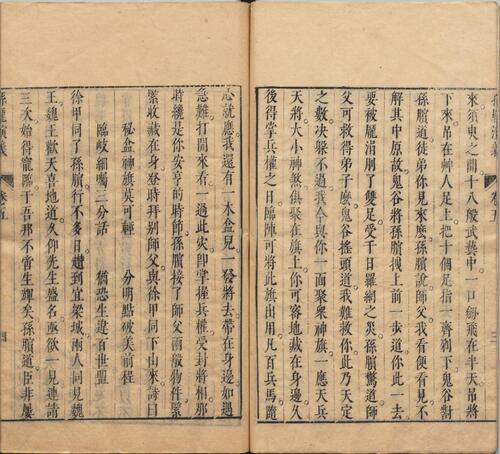 來須臾之間十八般武藝中一口劒飛在半天吊將
下來吊在艸人足上把十個足指一齊剁下鬼谷對
孫臏道徒弟你見來麽孫臏說師父我看便看見不
解其中原故鬼谷將孫臏拽上前一步道你此一去
要被龐涓刖了雙足受千日羅網之災孫臏驚道師
父可救得弟子麽鬼谷搖頭道我難救你此乃天定
之數决躲不過我今與你一面聚衆神旗一應天兵
天將大小神煞俱聚在旗上你可容地藏在身邊久
後得掌兵權之日臨陣可將此旗出用凡百兵馬隨
心就應我還有一木盒兒一發將去帶在身邊如遇
急難打開來看一過此灾卽掌握兵權受封將相那
時纔是你安亨的時節孫臏接了師父兩般物件緊
緊收藏在身登時拜别師父與徐甲同下山來詩曰
秘盒神旗莫可輕　分明點破美前程
臨歧細囑三分話　猶恐生違百世盟
徐甲同了孫臏行不多日趲到宜梁城兩人同見魏
王魏王歡天喜地道久仰先生盛名亟欲一見連請
三次始得寵臨于吾邦不啻生輝矣孫臏道臣非屢
孫龐演義　卷五　四